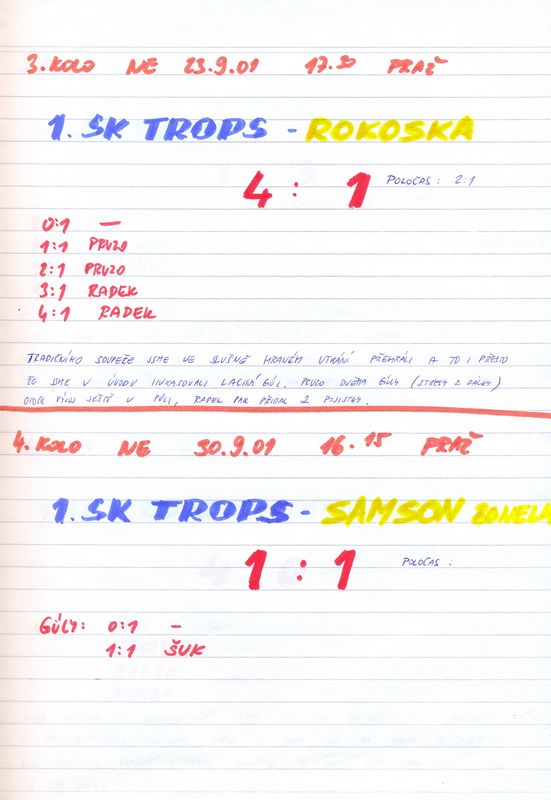 3. KOLO NE 23.9.01 17.30 PRAŽ
1. SK TROPS - ROKOSKA
4 : 1 POLOČAS : 2:1
0:1 —
1:1 PRVZO
2:1 PRVZO
3:1 RADEK
4:1 RADEK
TRADIČNÍHO SOUPEŘE JSME VE SLUŠNĚ HRANÉM UTKÁNÍ PŘEHRÁLI A TO I PŘESTO
ŽE JSME V ÚVODU INKASOVALI LACINÝ GÓL. PRVZO DVĚMA GÓLY (STŘELY Z DÁLKY)
OTOČIL VÝVOJ JEŠTĚ V PŮLI, RADEK PAK PŘIDAL 2 POJISTKY.
4. KOLO NE 30.9.01 16.15 PRAŽ
1. SK TROPS - SAMSON ZONELA
1 : 1 POLOČAS :
GÓLY: 0:1 —
1:1 ŠUK